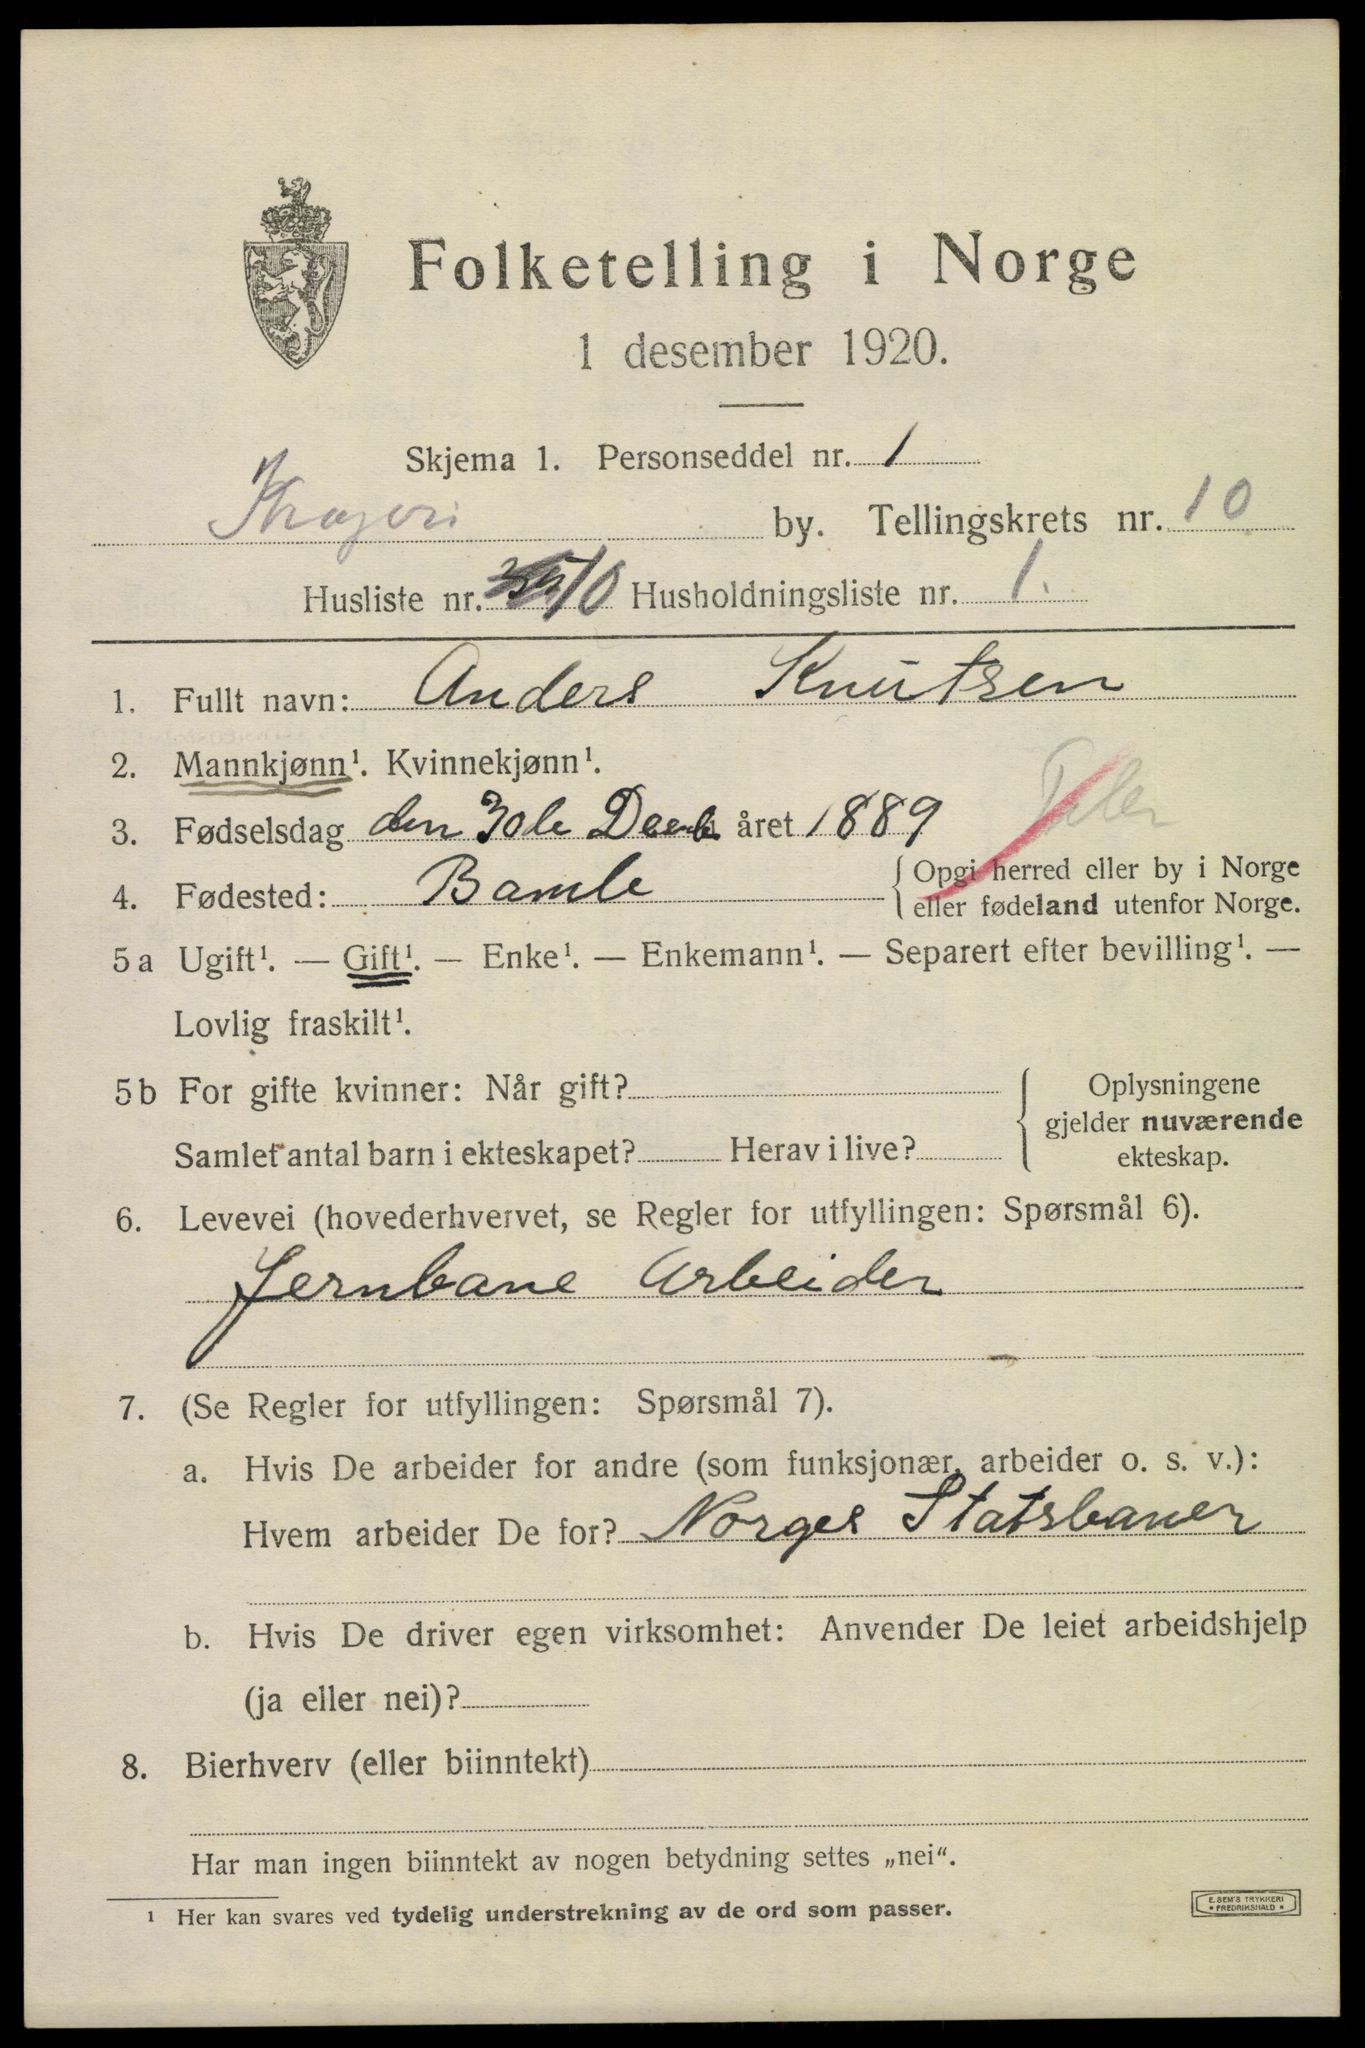 Folketelling i Norge
1 desember 1920.
Skjema 1. Personseddel nr. 1
Kragerö by. Tellingskrets nr. 10
Husliste nr. 10 Husholdningsliste nr. 1.
1. Fullt navn: Anders Knutsen
2. Mannkjønn¹. Kvinnekjønn¹.
3. Fødselsdag den 30de Decmb året 1889
4. Fødested: Bamle { Opgi herred eller by i Norge
eller fødeland utenfor Norge.
5a Ugift¹. — Gift¹. — Enke¹. — Enkemann¹. — Separert efter bevilling¹. —
Lovlig fraskilt¹.
5b For gifte kvinner: Når gift? { Oplysningene
gjelder nuværende
Samlet antal barn i ekteskapet? Herav i live? ekteskap.
6. Levevei (hovederhvervet, se Regler for utfyllingen: Spørsmål 6).
Jernbane Arbeider
7. (Se Regler for utfyllingen: Spørsmål 7).
a. Hvis De arbeider for andre (som funksjonær, arbeider o. s. v.):
Hvem arbeider De for? Norges Statsbaner
b. Hvis De driver egen virksomhet: Anvender De leiet arbeidshjelp
(ja eller nei)?
8. Bierhverv (eller biinntekt)
Har man ingen biinntekt av nogen betydning settes „nei".
¹ Her kan svares ved tydelig understrekning av de ord som passer.
E. SEM'S TRYKKERI
* FREDRIKSHALD *